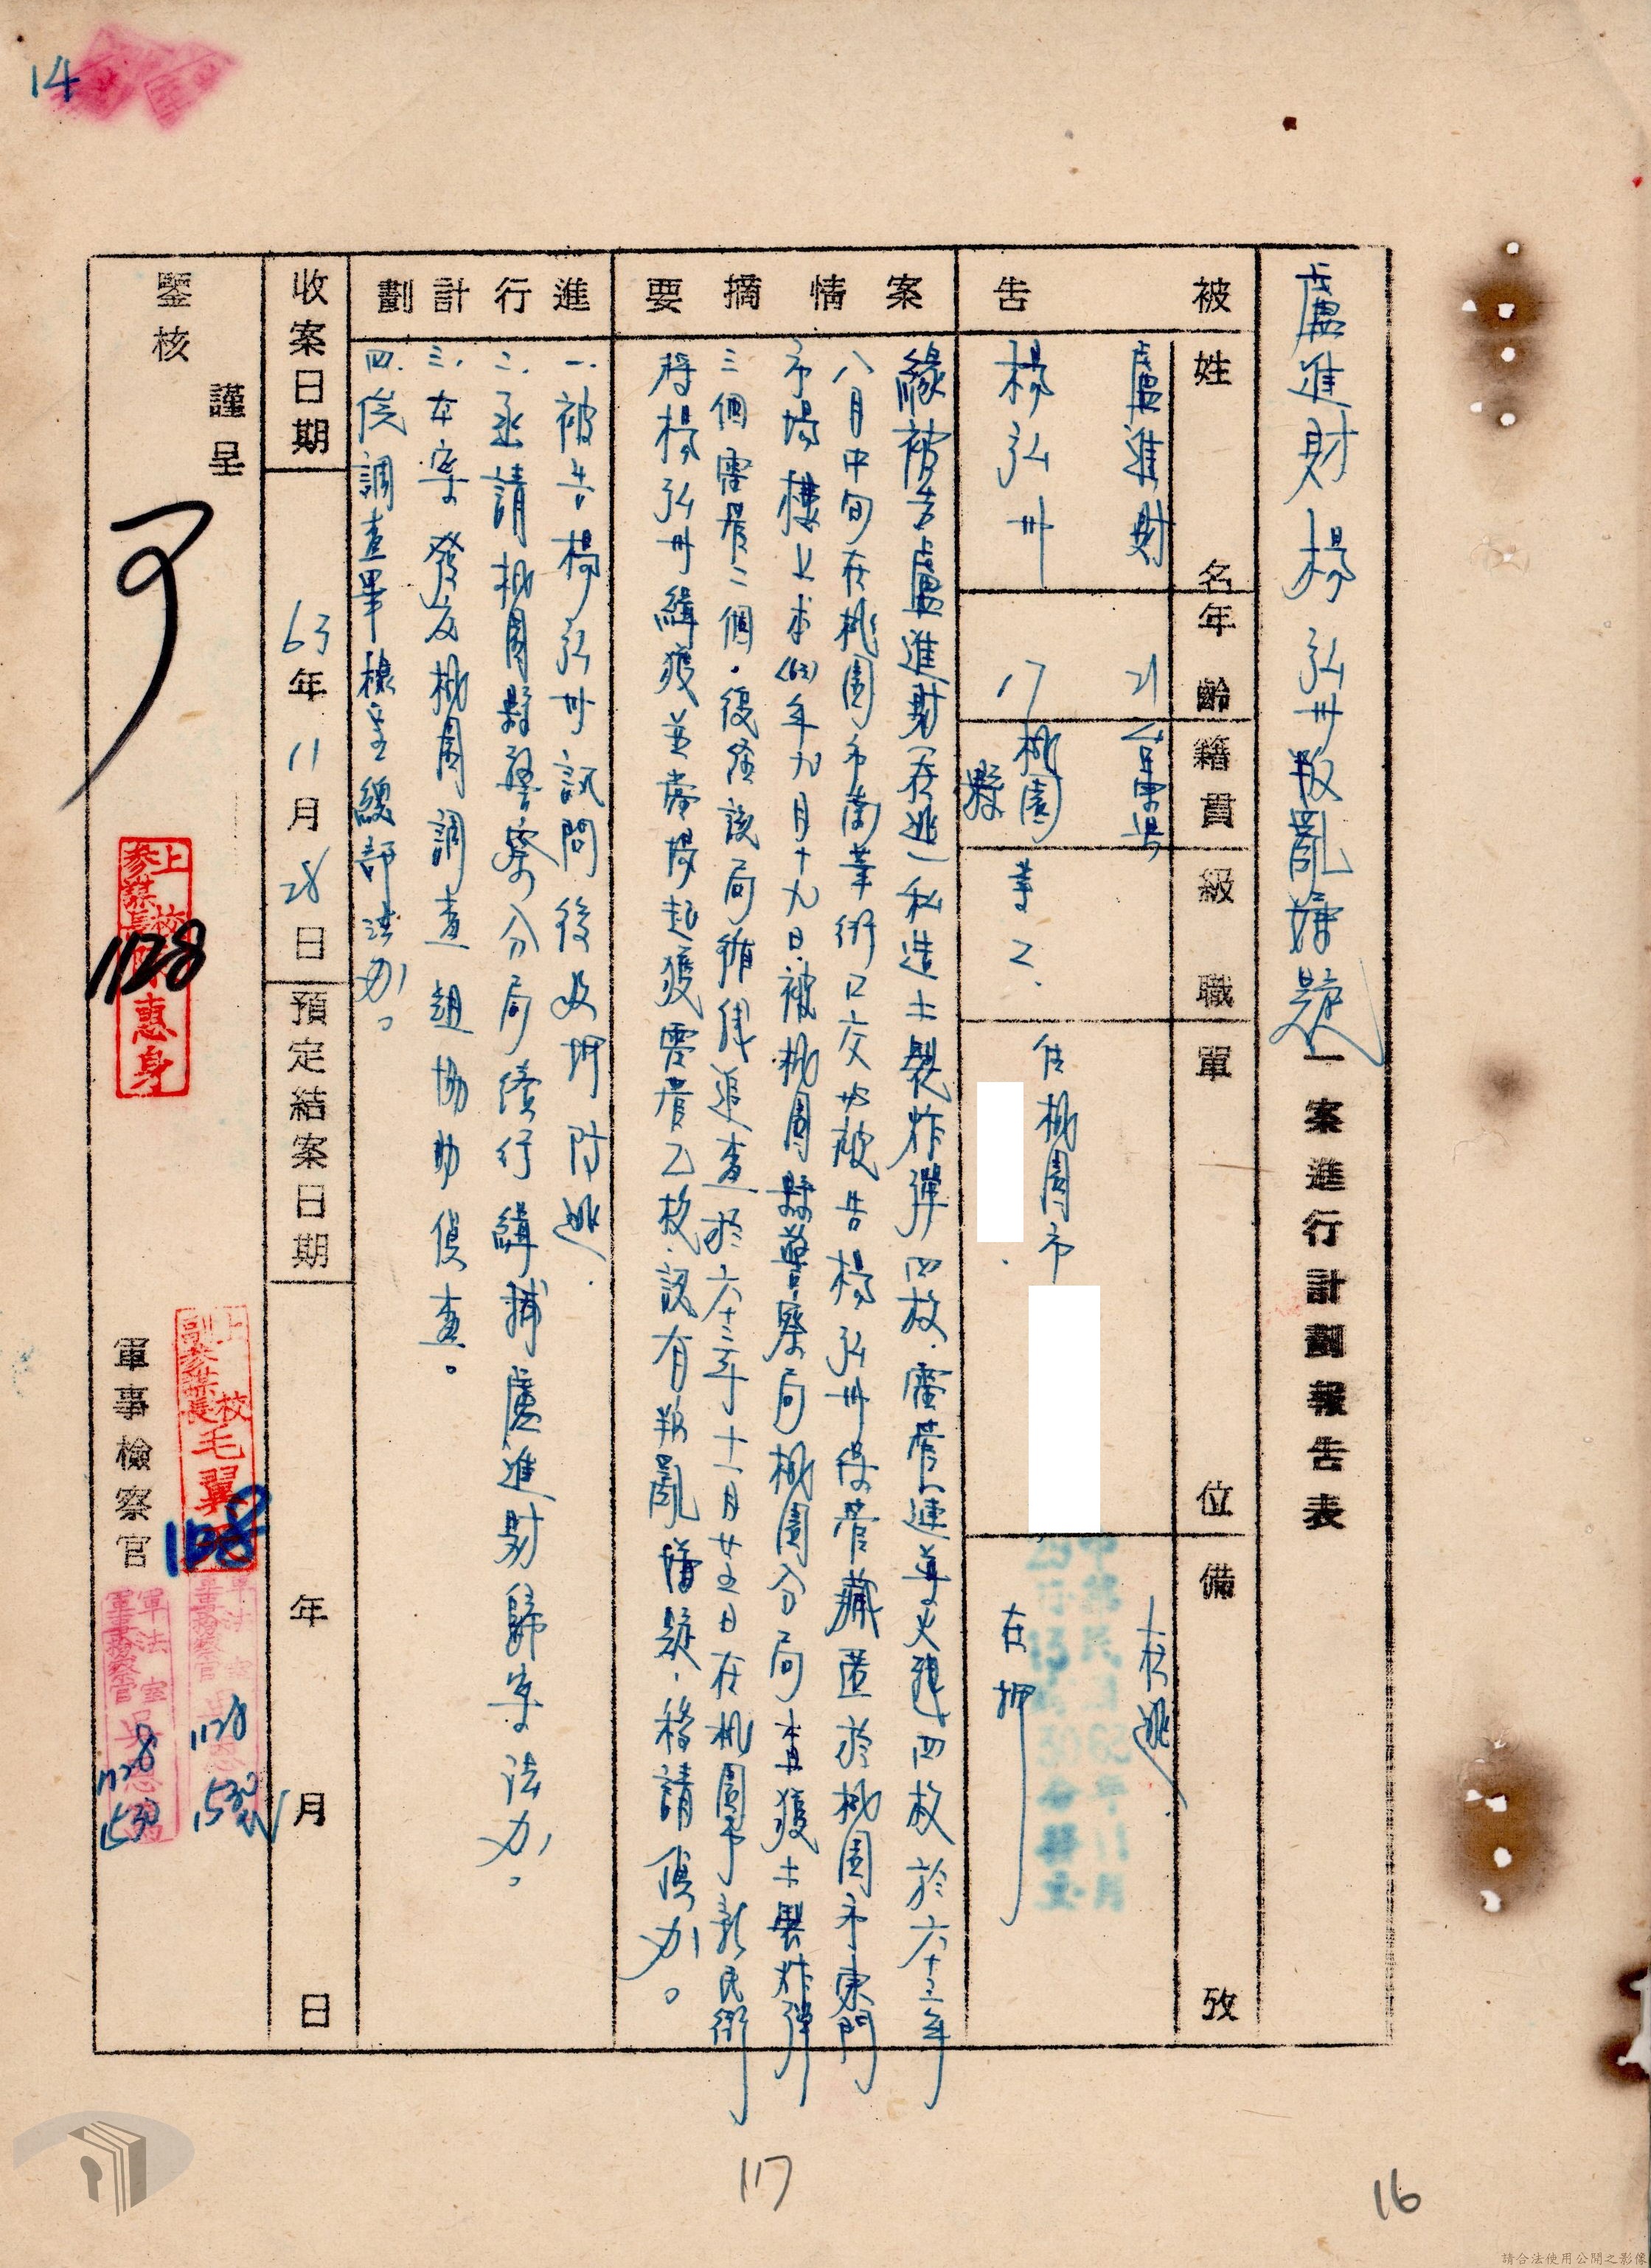 14
盧進財楊弘卅叛亂嫌疑一案進行計劃報告表
被告
姓名
年齡
籍貫
級職
單位
備攷
盧進財
21
台東縣
在逃
楊弘卅
17
桃園縣
業工
住桃園市
在押
案情摘要
緣被告盧進財(在逃)私造土製炸彈四枚、雷管連導火線四枚於六十三年
八月中旬在桃園市南華街口交與被告楊弘卅保管藏匿於桃園市東門
市場樓上本(63)年九月十九日被桃園縣警察局桃園分局查獲土製炸彈
三個雷管二個、後經該局循線追查於六十三年十一月廿五日在桃園市新民街
將楊弘卅緝獲並帶揚起獲雷管乙枚、認有叛亂嫌疑、移請偵办。
進行計劃
一、被告楊弘卅訊問後收押防逃、
二、函請桃園縣警察分局續行緝捕盧進財歸案法办。
三、本案發交桃園調查組協助偵查。
四、俟調查畢檢呈總部法办。
收案日期
63年11月28日
預定結案日期
年月日
謹呈
鑒核
可
上校參謀長
惠身
1128
上校副參謀長毛翼
1128
軍事檢察官
軍法室軍事檢察官
1128
1530
軍法室軍事檢察官吳
1128
1530
117
16
請合法使用公開之影像